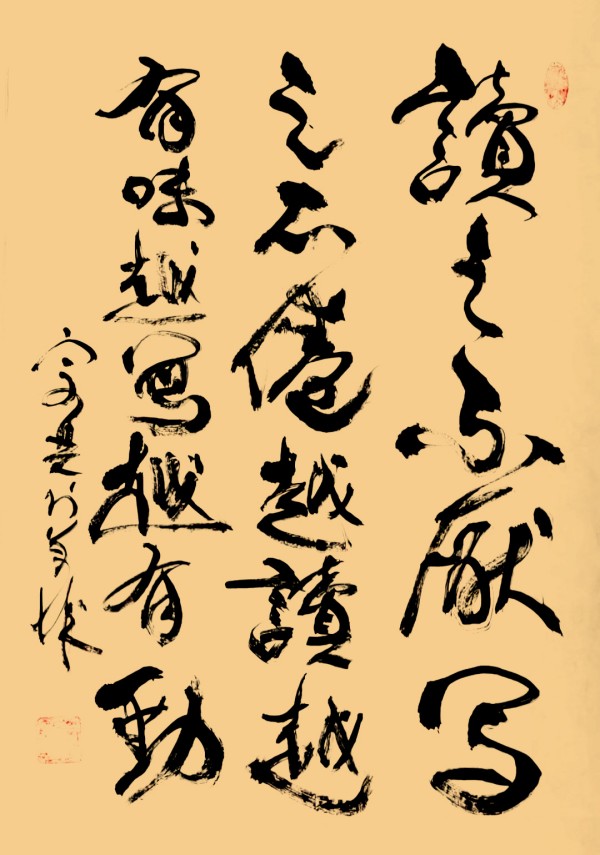 讀之不厭写
之不倦越讀越
有味越寫越有勁